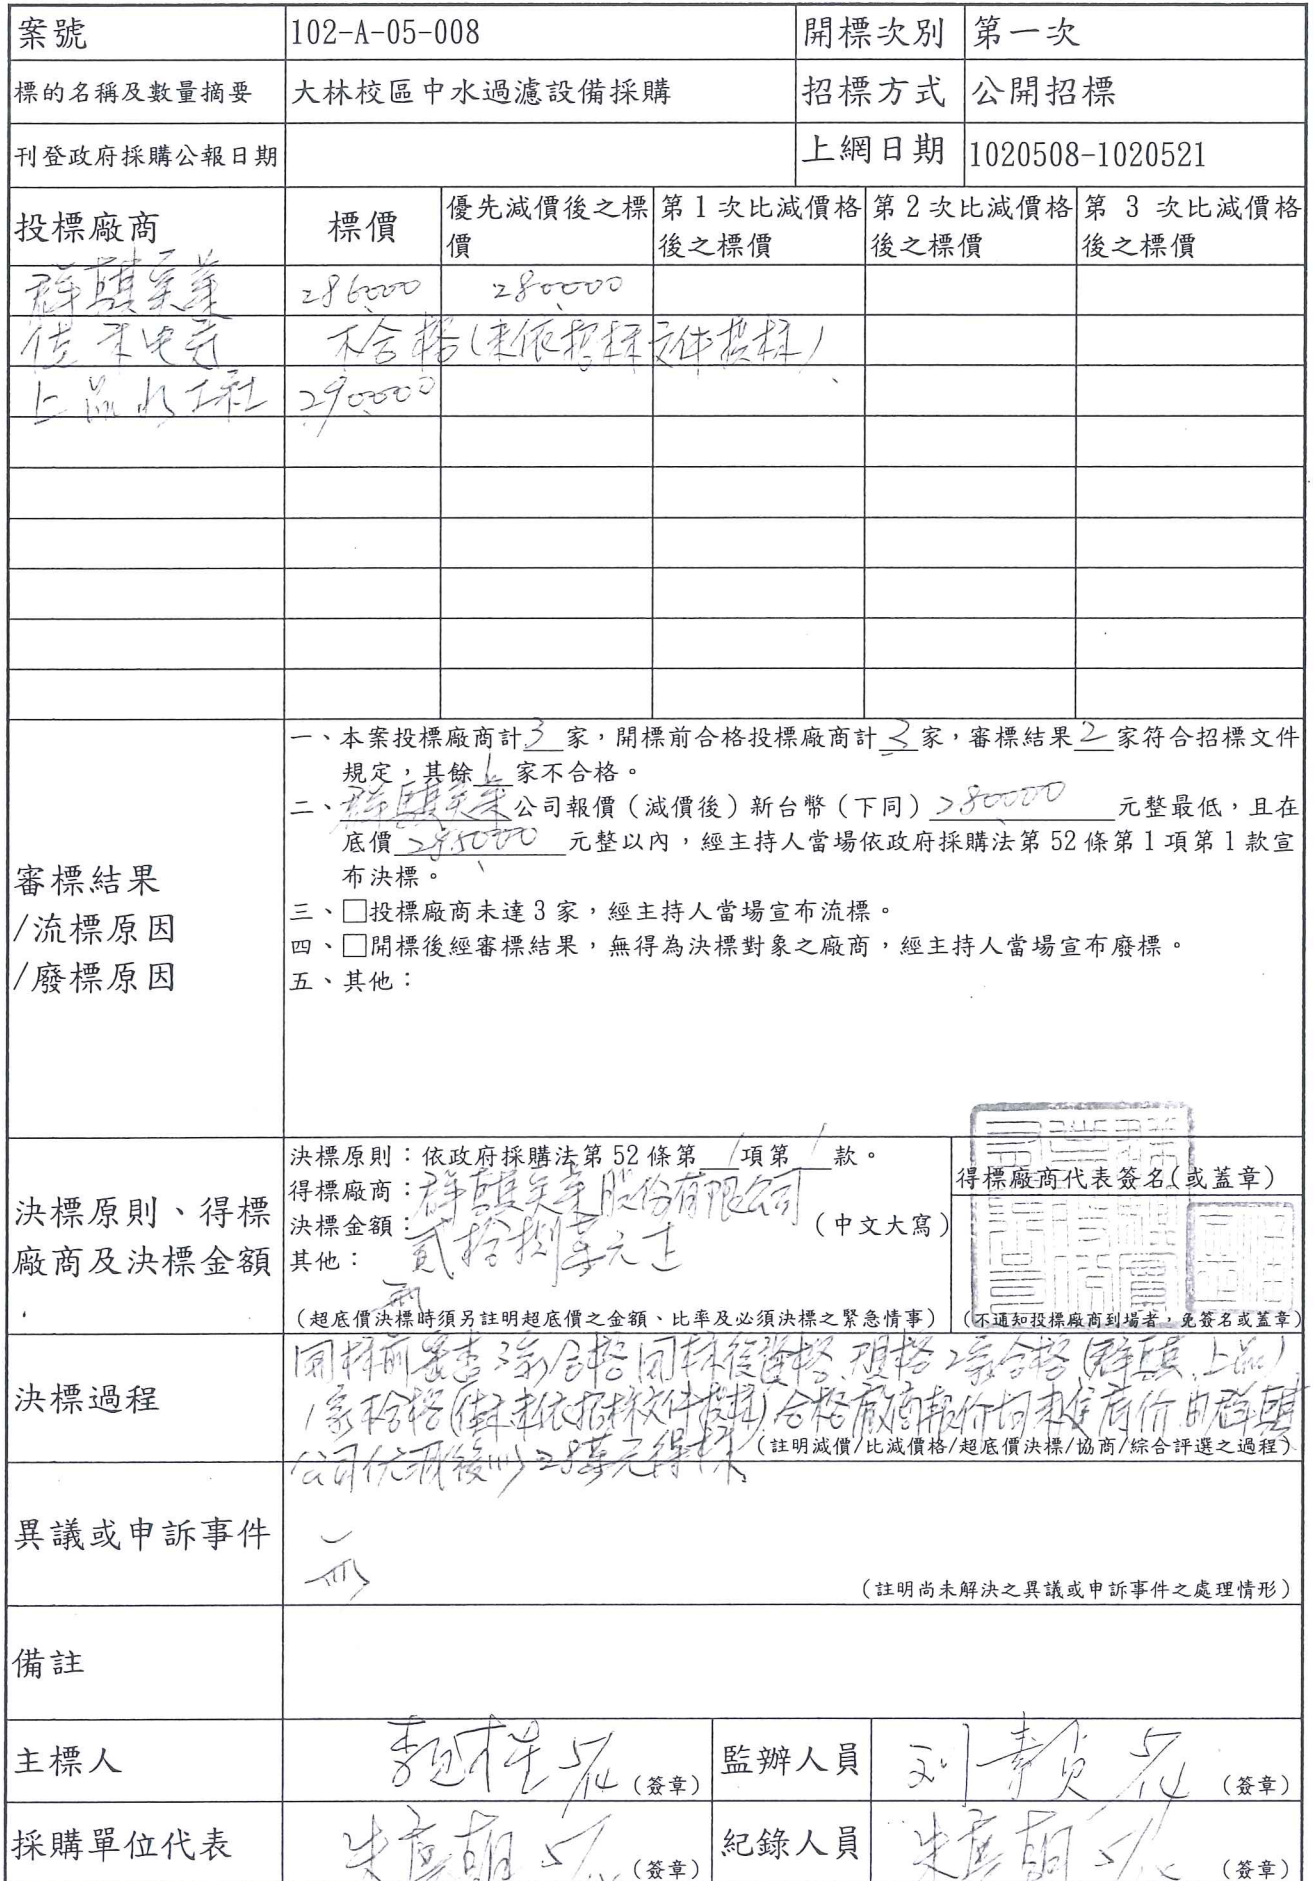 案號 102-A-05-008 開標次別 第一次
標的名稱及數量摘要 大林校區中水過濾設備採購 招標方式 公開招標
刊登政府採購公報日期 上網日期 1020508-1020521
投標廠商 標價 優先減價後之標價 第1次比減價格後之標價 第2次比減價格後之標價 第3次比減價格後之標價
群騏實業 286000 280000
佳禾 不合格(未依招標文件投標)
上品水工社 290000
審標結果
/流標原因
/廢標原因
一、本案投標廠商計3家,開標前合格投標廠商計3家,審標結果2家符合招標文件
規定,其餘1家不合格。
二、群騏實業公司報價(減價後)新台幣(下同)280000元整最低,且在
底價285000元整以內,經主持人當場依政府採購法第52條第1項第1款宣
布決標。
三、□投標廠商未達3家,經主持人當場宣布流標。
四、□開標後經審標結果,無得為決標對象之廠商,經主持人當場宣布廢標。
五、其他:
決標原則、得標
廠商及決標金額
決標原則:依政府採購法第52條第1項第1款。
得標廠商:群騏實業股份有限公司
決標金額:貳拾捌萬元正 (中文大寫)
其他:無
(超底價決標時須另註明超底價之金額、比率及必須決標之緊急情事)
得標廠商代表簽名(或蓋章)
(不通知投標廠商到場者,免簽名或蓋章)
決標過程
開標前審查3家合格 開標後資格、規格2家合格(群騏、上品)
1家不合格(佳禾未依招標文件投標),合格廠商報价均未進底价,由群騏
公司优減後以28萬元得標
(註明減價/比減價格/超底價決標/協商/綜合評選之過程)
異議或申訴事件 無
(註明尚未解決之異議或申訴事件之處理情形)
備註
主標人 5/14 (簽章) 監辦人員 5/14 (簽章)
採購單位代表 (簽章) 紀錄人員 (簽章)